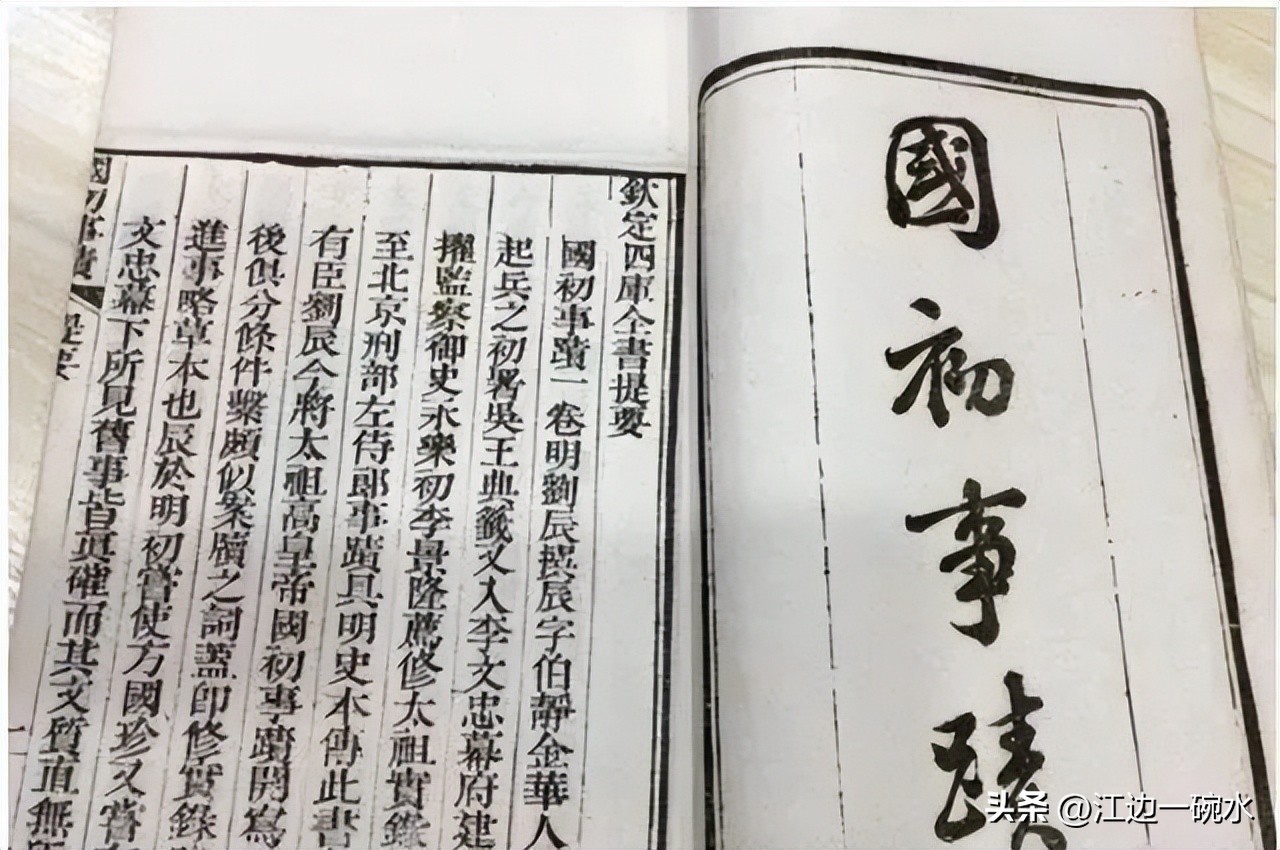 國初事蹟
欽定四庫全書提要
國初事蹟一卷明劉辰撰辰字伯靜金華人
起兵之初署吳王典籤又入李文忠幕府建
擢監察御史永樂初李景隆薦修太祖實錄
至北京刑部左侍郎事蹟具明史本傳此書
有臣劉辰今將太祖高皇帝國初事蹟開寫
後俱分條件繫頗似案牘之詞蓋卽修實錄
進事略草本也辰於明初嘗使方國珍又嘗
文忠幕下所見舊事皆真確而其文質直無
國初事蹟 提要 一
头条 @江边一碗水